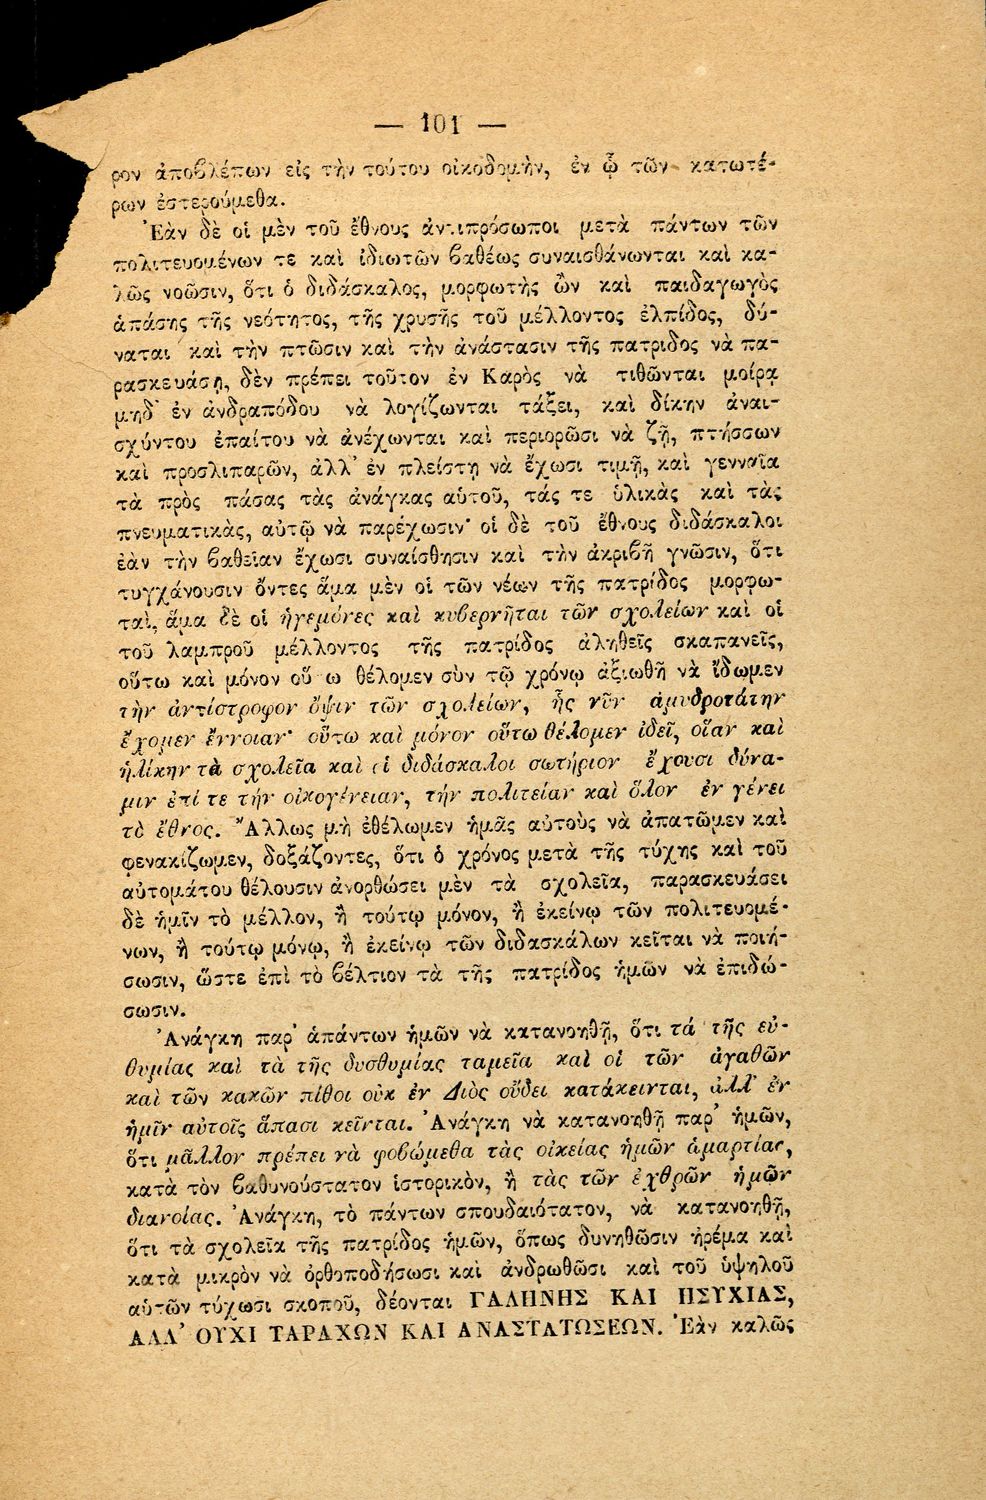 — 101 —
ρον ἀποβλέπων εἰς τὴν τούτου οἰκοδομὴν, ἐν ᾧ τῶν κατωτέ-
ρων ἐστερούμεθα.
Ἐὰν δὲ οἱ μὲν τοῦ ἔθνους ἀντιπρόσωποι μετὰ πάντων τῶν
πολιτευομένων τε καὶ ἰδιωτῶν βαθέως συναισθάνωνται καὶ κα-
λῶς νοῶσιν, ὅτι ὁ διδάσκαλος, μορφωτὴς ὢν καὶ παιδαγωγὸς
ἁπάσης τῆς νεότητος, τῆς χρυσῆς τοῦ μέλλοντος ἐλπίδος, δύ-
ναται καὶ τὴν πτῶσιν καὶ τὴν ἀνάστασιν τῆς πατρίδος νὰ πα-
ρασκευάσῃ, δὲν πρέπει τοῦτον ἐν Καρὸς νὰ τιθῶνται μοίρᾳ
μηδ' ἐν ἀνδραπόδου νὰ λογίζωνται τάξει, καὶ δίκην ἀναι-
σχύντου ἐπαίτου νὰ ἀνέχωνται καὶ περιορῶσι νὰ ζῇ, πτήσσων
καὶ προσλιπαρῶν, ἀλλ' ἐν πλείστῃ νὰ ἔχωσι τιμῇ, καὶ γενναῖα
τὰ πρὸς πάσας τὰς ἀνάγκας αὑτοῦ, τάς τε ὑλικὰς καὶ τὰς
πνευματικὰς, αὐτῷ νὰ παρέχωσιν· οἱ δὲ τοῦ ἔθνους διδάσκαλοι
ἐὰν τὴν βαθεῖαν ἔχωσι συναίσθησιν καὶ τὴν ἀκριβῆ γνῶσιν, ὅτι
τυγχάνουσιν ὄντες ἅμα μὲν οἱ τῶν νέων τῆς πατρίδος μορφω-
ταὶ, ἅμα δὲ οἱ ἡγεμόνες καὶ κυβερνῆται τῶν σχολείων καὶ οἱ
τοῦ λαμπροῦ μέλλοντος τῆς πατρίδος ἀληθεῖς σκαπανεῖς,
οὕτω καὶ μόνον οὕ ω θέλομεν σὺν τῷ χρόνῳ ἀξιωθῆ νὰ ἴδωμεν
τὴν ἀντίστροφον ὄψιν τῶν σχολείων, ἧς νῦν ἀμυδροτάτην
ἔχομεν ἔννοιαν· οὕτω καὶ μόνον οὕτω θέλομεν ἰδεῖ, οἵαν καὶ
ἡλίκην τὰ σχολεῖα καὶ οἱ διδάσκαλοι σωτήριον ἔχουσι δύνα-
μιν ἐπί τε τὴν οἰκογένειαν, τὴν πολιτείαν καὶ ὅλον ἐν γένει
τὸ ἔθνος. Ἄλλως μὴ ἐθέλωμεν ἡμᾶς αὐτοὺς νὰ ἀπατῶμεν καὶ
φενακίζωμεν, δοξάζοντες, ὅτι ὁ χρόνος μετὰ τῆς τύχης καὶ τοῦ
αὐτομάτου θέλουσιν ἀνορθώσει μὲν τὰ σχολεῖα, παρασκευάσει
δὲ ἡμῖν τὸ μέλλον, ἢ τούτῳ μόνον, ἢ ἐκείνῳ τῶν πολιτευομέ-
νων, ἢ τούτῳ μόνῳ, ἢ ἐκείνῳ τῶν διδασκάλων κεῖται νὰ ποιή-
σωσιν, ὥστε ἐπὶ τὸ βέλτιον τὰ τῆς πατρίδος ἡμῶν νὰ ἐπιδώ-
σωσιν.
Ἀνάγκη παρ' ἁπάντων ἡμῶν νὰ κατανοηθῇ, ὅτι τά τῆς εὐ-
θυμίας καὶ τὰ τῆς δυσθυμίας ταμεῖα καὶ οἱ τῶν ἀγαθῶν
καὶ τῶν κακῶν πίθοι οὐκ ἐν Διὸς οὔδει κατάκεινται, ἀλλ' ἐν
ἡμῖν αὐτοῖς ἅπασι κεῖνται. Ἀνάγκη νὰ κατανοηθῇ παρ' ἡμῶν,
ὅτι μᾶλλον πρέπει νὰ φοβώμεθα τὰς οἰκείας ἡμῶν ἁμαρτίας,
κατὰ τὸν βαθυνούστατον ἱστορικὸν, ἢ τὰς τῶν ἐχθρῶν ἡμῶν
διανοίας. Ἀνάγκη, τὸ πάντων σπουδαιότατον, νὰ κατανοηθῇ,
ὅτι τὰ σχολεῖα τῆς πατρίδος ἡμῶν, ὅπως δυνηθῶσιν ἠρέμα καὶ
κατὰ μικρὸν νὰ ὀρθοποδήσωσι καὶ ἀνδρωθῶσι καὶ τοῦ ὑψηλοῦ
αὑτῶν τύχωσι σκοποῦ, δέονται ΓΑΛΗΝΗΣ ΚΑΙ ΗΣΥΧΙΑΣ,
ΑΛΛ' ΟΥΧΙ ΤΑΡΑΧΩΝ ΚΑΙ ΑΝΑΣΤΑΤΩΣΕΩΝ. Ἐὰν καλῶς